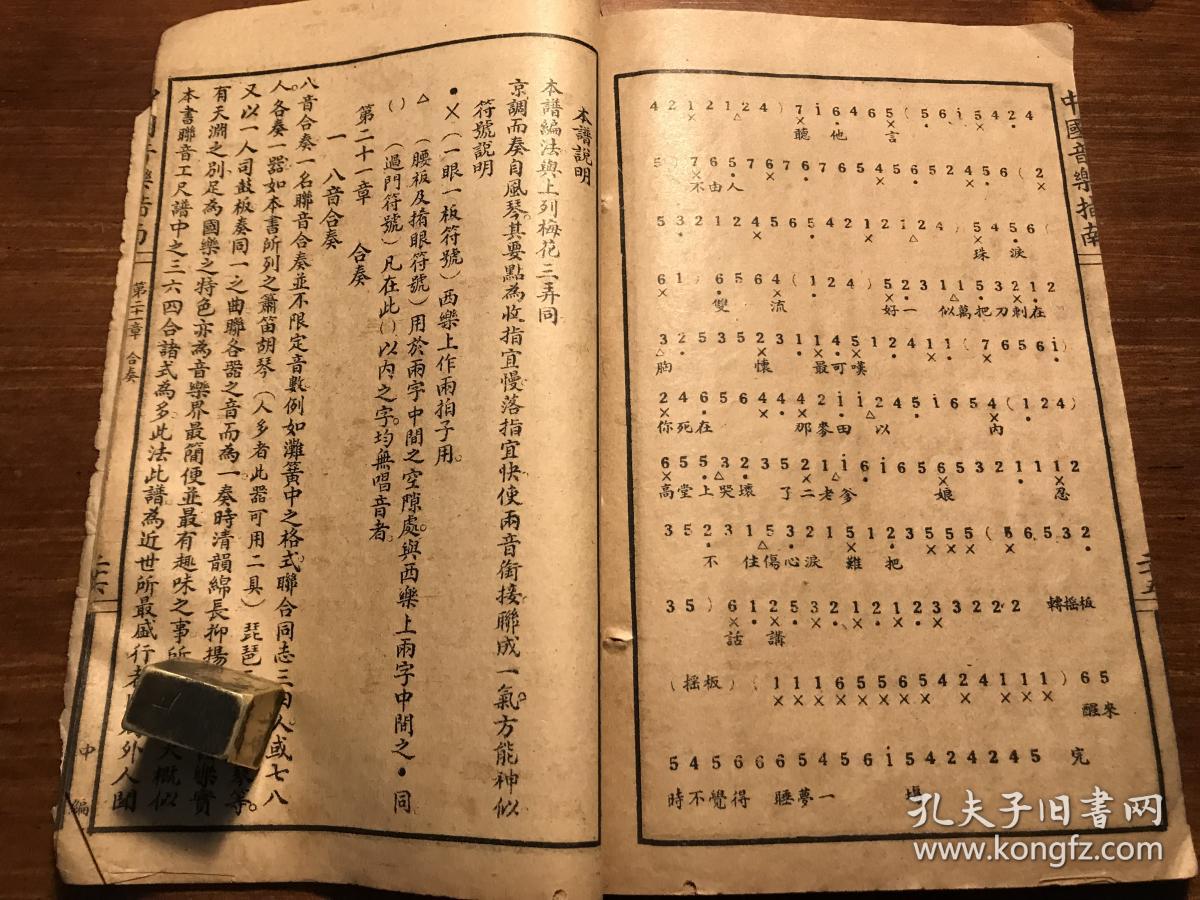 中國音樂指南
二五
4 2 1 2 1 2 4 ) 7 i 6 4 6 5 ( 5 6 i 5 4 2 4
聽 他 言
5 ) 7 6 5 7 6 7 6 7 6 7 6 5 4 5 6 5 2 4 5 6 ( 2
不由人
5 3 2 1 2 4 5 6 5 4 2 1 2 1 2 4 ) 5 4 5 6 (
珠 淚
6 1 ) 6 5 6 4 ( 1 2 4 ) 5 2 3 1 1 5 3 2 1 2
雙 流 好一 似萬把刀刺在
3 2 5 3 5 2 3 1 1 4 5 1 2 4 1 1 ( 7 6 5 6 i )
胸 懷 最可嘆
2 4 6 5 6 4 4 4 2 i i 2 4 5 i 6 5 4 ( 1 2 4 )
你死在 那麥田 以 內
6 5 5 3 2 3 5 2 1 i 6 i 6 5 6 5 3 2 1 1 1 2
高堂上哭壞 了二老爹 娘 忍
3 5 2 3 1 5 3 2 1 5 1 2 3 5 5 5 2 5 ( 5 6 5 3 2
不 住傷心淚 難 把
3 5 ) 6 1 2 5 3 2 1 2 1 2 1 2 3 3 2 2 2 轉摇板
話 講
(摇板) ( 1 1 1 6 5 5 6 5 4 2 4 1 1 1 ) 6 5
醒來
5 4 5 6 6 6 6 5 4 5 6 i 5 4 2 4 2 4 5 完
時不覺得 睡夢一 場
本譜說明
本譜編法與上列梅花三弄同
京調而奏自風琴其要點為收指宜慢落指宜快使兩音銜接聯成一氣方能神似
符號說明
•×(一眼一板符號)西樂上作兩拍子用。
△ (腰板及揹眼符號)用於兩字中間之空隙處與西樂上兩字中間之•同
() (過門符號)凡在此()以內之字均無唱音者
第二十一章 合奏
一 八音合奏
八音合奏一名聯音合奏並不限定音數例如灘簧中之格式聯合同志三四人或七八
人各奏一器如本書所列之簫笛胡琴(人多者此器可用二具)琵琶三 等。
又以一人司鼓板奏同一之曲聯各器之音而為一奏時清韻綿長抑揚 樂實
有天淵之別足為國樂之特色亦為音樂界最簡便並最有趣味之事所 大概似
本書聯音工尺譜中之三六四合諸式為多此法此譜為近世所最盛行者 外人聞
第二十一章 合奏
二六
中編
孔夫子旧书网
www.kongfz.com